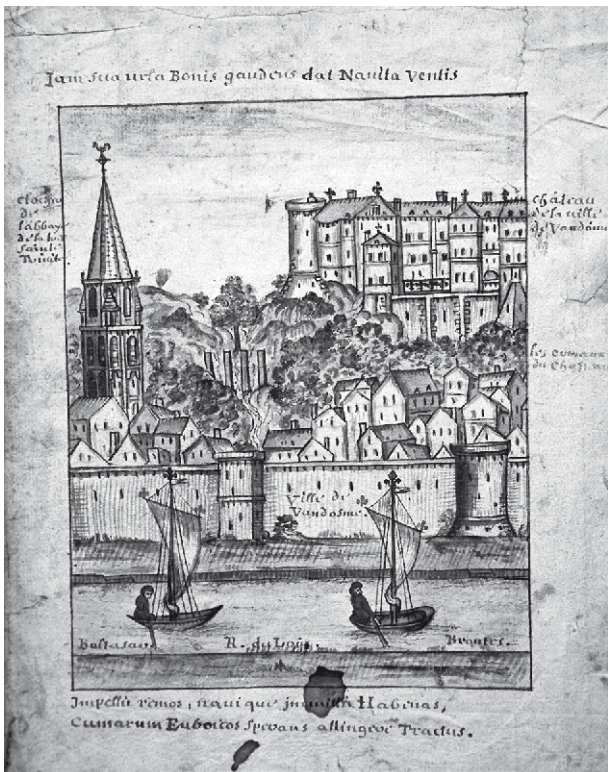 Jam sua vela Bonis gaudens dat Navita Ventis
Clocher
de
l'abbaye
de la
Sainte
Trinité
château
de la ville
de Vandôme
du
Ville de
Vandosme.
R. du Loir
Brontes.
Impellit remos, navique Habenas,
Cumarum Euboicos sperans attingere Tractus.